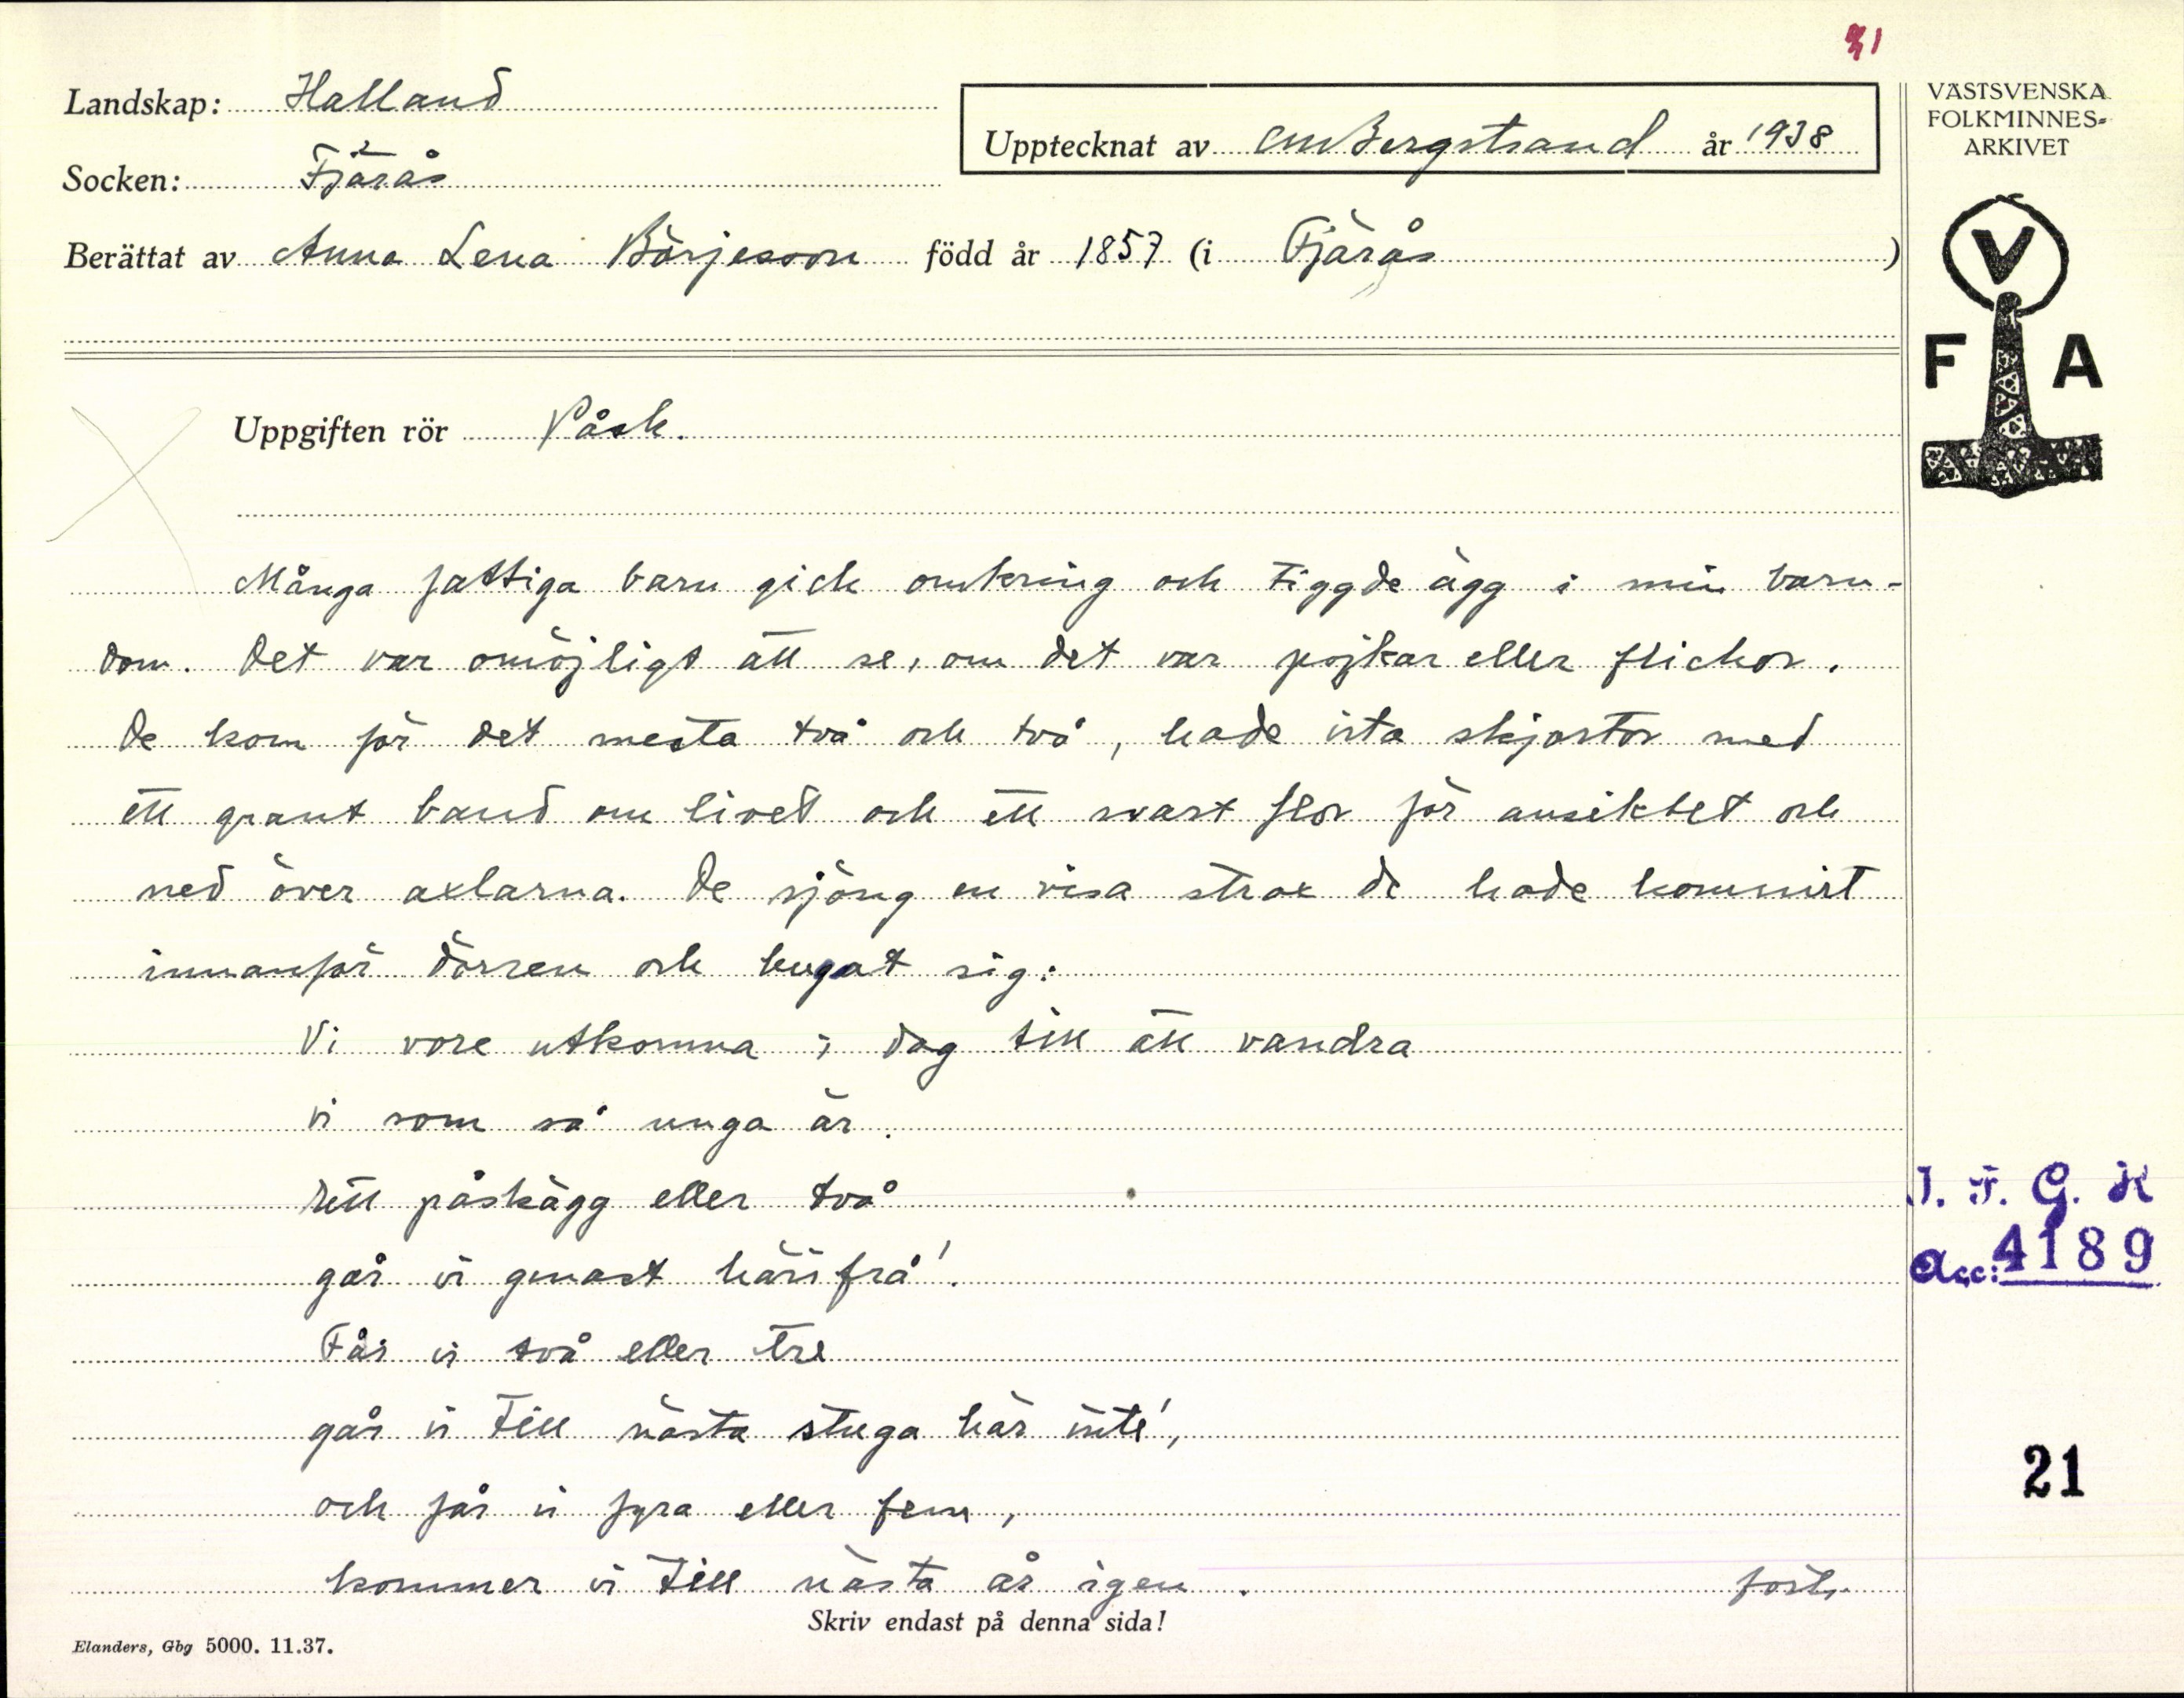 21
Landskap: Halland
Upptecknat av CMBergstrand år 1938
Socken: Fjärås
Berättat av Anna Lena Börjesson född år 1857 (i Fjärås)
VÄSTSVENSKA
FOLKMINNES-
ARKIVET
V
F A
Uppgiften rör Påsk.
Många fattiga barn gick omkring och tiggde ägg i min barn-
dom. Det var omöjligt att se, om det var pojkar eller flickor.
De kom för det mesta två och två, hade vita skjortor med
ett grant band om livet och ett svart flor för ansiktet och
ned över axlarna. De sjöng en visa strax de hade kommit
innanför dörren och bugat sig:
Vi vore utkomna i dag till att vandra
vi som så unga är.
Ett påskägg eller två
går vi genast härifrå'.
Får vi två eller tre
går vi till nästa stuga här inte',
och får vi fyra eller fem,
kommer vi till nästa år igen.
forts.
Skriv endast på denna sida!
Elanders, Gbg 5000. 11.37.
I. F. G. K
Acc: 4189
21